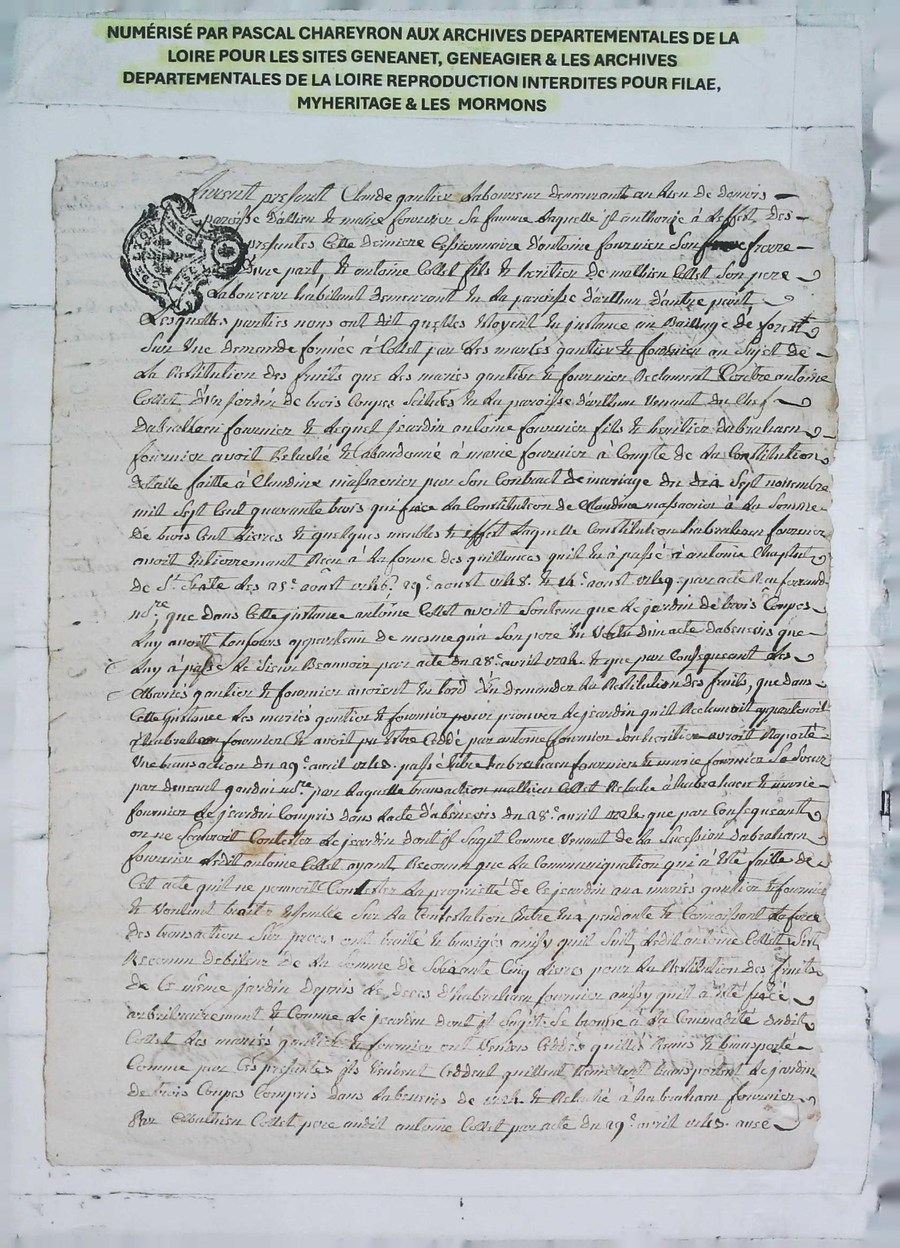 NUMÉRISÉ PAR PASCAL CHAREYRON AUX ARCHIVES DEPARTEMENTALES DE LA
LOIRE POUR LES SITES GENEANET, GENEAGIER & LES ARCHIVES
DEPARTEMENTALES DE LA LOIRE REPRODUCTION INTERDITES POUR FILAE,
MYHERITAGE & LES MORMONS
furent present Claude gautier Laboureur demeurant au lieu de
paroisse et marie fournier sa femme Laquelle il authorize à Leffet des
presentes Cette derniere Cessionnaire d'antoine fournier son frere
D'une part, et antoine Collet fils et heritier de mathieu Collet son pere
Laboureur habitant demeurant en la paroisse d'arthun d'autre part
Lesquelles parties nous ont dit quelles etoyent en instance au Bailiage de forest
Sur une demande formée à Collet par Les mariés gautier et fournier au Sujet de
La Restitution des fruits que Les mariés gautier et fournier Reclament Contre antoine
Collet d'un jardin de trois Coupes Scitués en La paroisse d'arthun venant du Chef
Dabraham fournier et Lequel jeardin antoine fournier fils et heritier dabraham
fournier avoit Relaché et abandonné à marie fournier à Compte de La Constitution
faitte à Claudine massacrier par Son Contract de mariage du dix Sept novembre
mil Sept Cent quarante trois qui fixe La Constitution de Claudine massacrier à La Somme
de trois Cent Livres et quelques meubles et effet Laquelle Constitution habraham fournier
avoit entierremant Recu à La forme des quittances quil en à passé à antoine
de St. des 25e. aoust 29e. aoust et aoust par acte Recu
nore, que dans Cette instance antoine Collet avoit Soutenu que Le jardin de trois Coupes
Luy avoit toujours appartenu de mesme qu'a Son pere en vertu dun acte dabenevis que
Luy à passé Le Sieur par acte du 28e. avril et que par Consequant Les
Mariés gautier et fournier avoient eu tord d'en demander La Restitution des fruits, que dans
Cette instance Les mariés gautier et fournier pour prouver Le jeardin quil Reclamoit appartenoit
à habraham fournier et avoit pu etre Ceddé par antoine fournier Son heritier avroit Raporté
Une transaction du 29e. avril passé entre habraham fournier et marie fournier Sa Soeur
par devant nore par Laquelle transaction mathieu Collet Relache à habraham et marie
fournier Le jeardin Compris dans Lacte d'abenevis du 28e. avril que par Consequant
on ne Sauroit Contester Le jeardin dont il Sagit Comme venant de La Succession dabraham
fournier Ledit antoine Collet ayant Reconnu que La Communiquation qui à été faitte de
Cet acte quil ne pouvoit Contester La proprieté de Ce jeardin aux mariés gautier et fournier
et voulant traiter ensemble Sur La Contestation entre eux pendante et Connoissant La force
des transaction Sur proces ont traité et transigés ainsy quil Suit, Ledit antoine Collet Sest
Reconnu debiteur de La Somme de Soixante Cinq Livres pour La Restitution des fruits
de Ce même jardin Depuis Le deces d'habraham fournier ainsy quil à été fixé
arbitrairemant et Comme Le jeardin dont il Sagit Se trouve à La Commodité dudit
Collet Les mariés gautier et fournier ont vendus Ceddés quittés Remis et transporté
Comme par Ces presentes ils vendent Ceddent quittent Remettent transportent Le jeardin
de trois Coupes Compris dans Labenevis de et Relaché à habraham fournier
Par Mathieu Collet pere audit antoine Collet par acte du 29e. avril avec